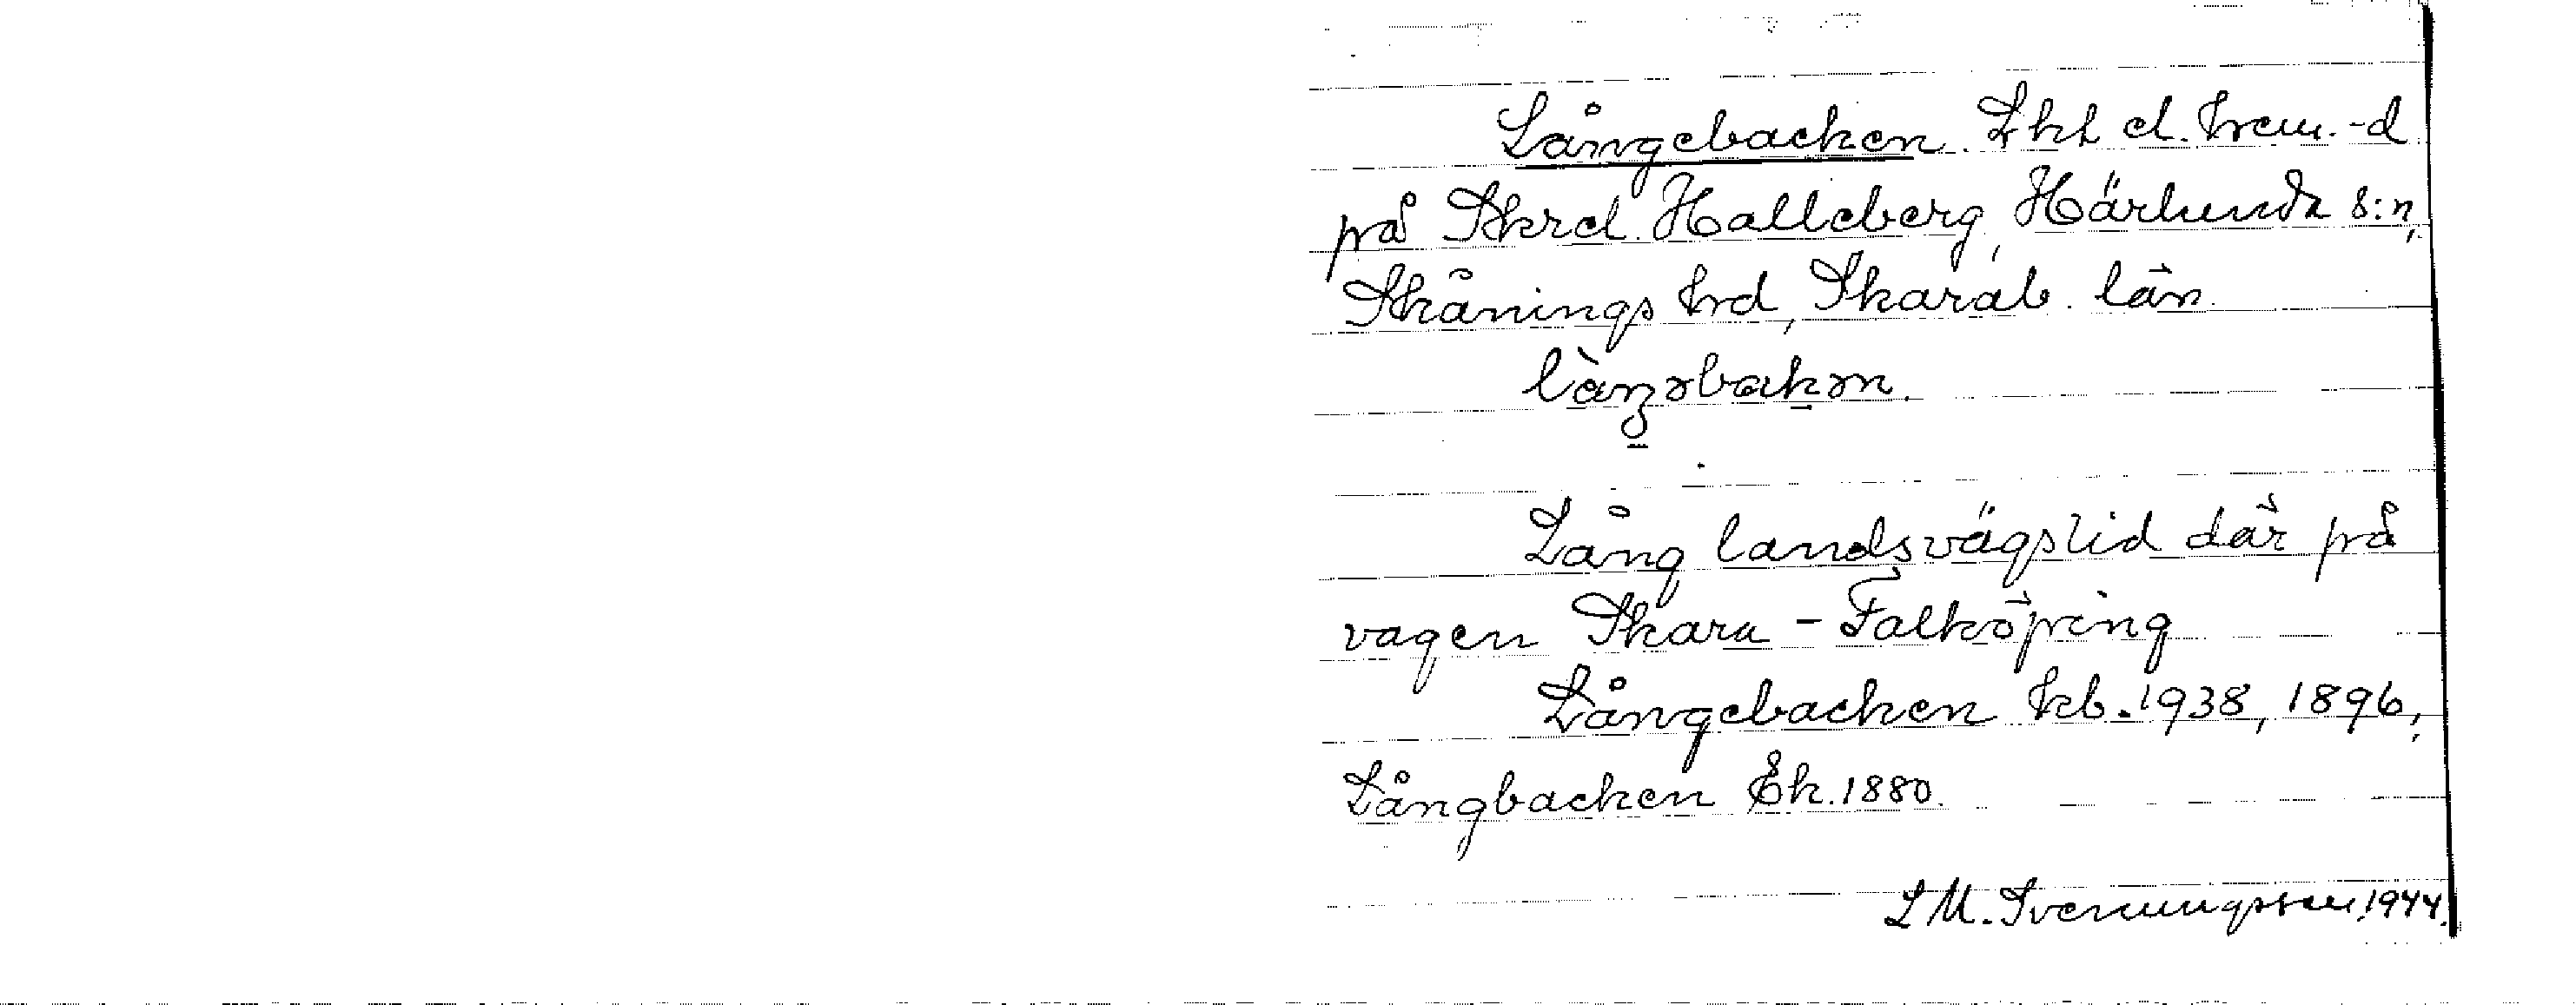 Långebacken. Lht el. hem.-d
på Skrd. Halleberg, Härlunda s:n,
Skånings hrd, Skarab. län.
Lång landsvägslid där på
vägen Skara - Falköping
Långebacken kb. 1938, 1896,
Långbacken Ek. 1880.
L M. Svenungsson 1944.